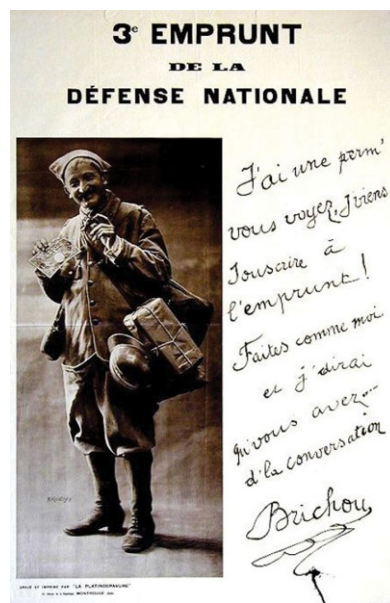 3e EMPRUNT
DE LA
DÉFENSE NATIONALE
J'ai une perm'
vous voyez, J'viens
Souscrire à
l'emprunt!
Faites comme moi
et j'dirai
qu'vous avez...
d'la conversation
Brichou
GRAVÉ ET IMPRIMÉ PAR "LA PLATINOGRAVURE"
MONTROUGE